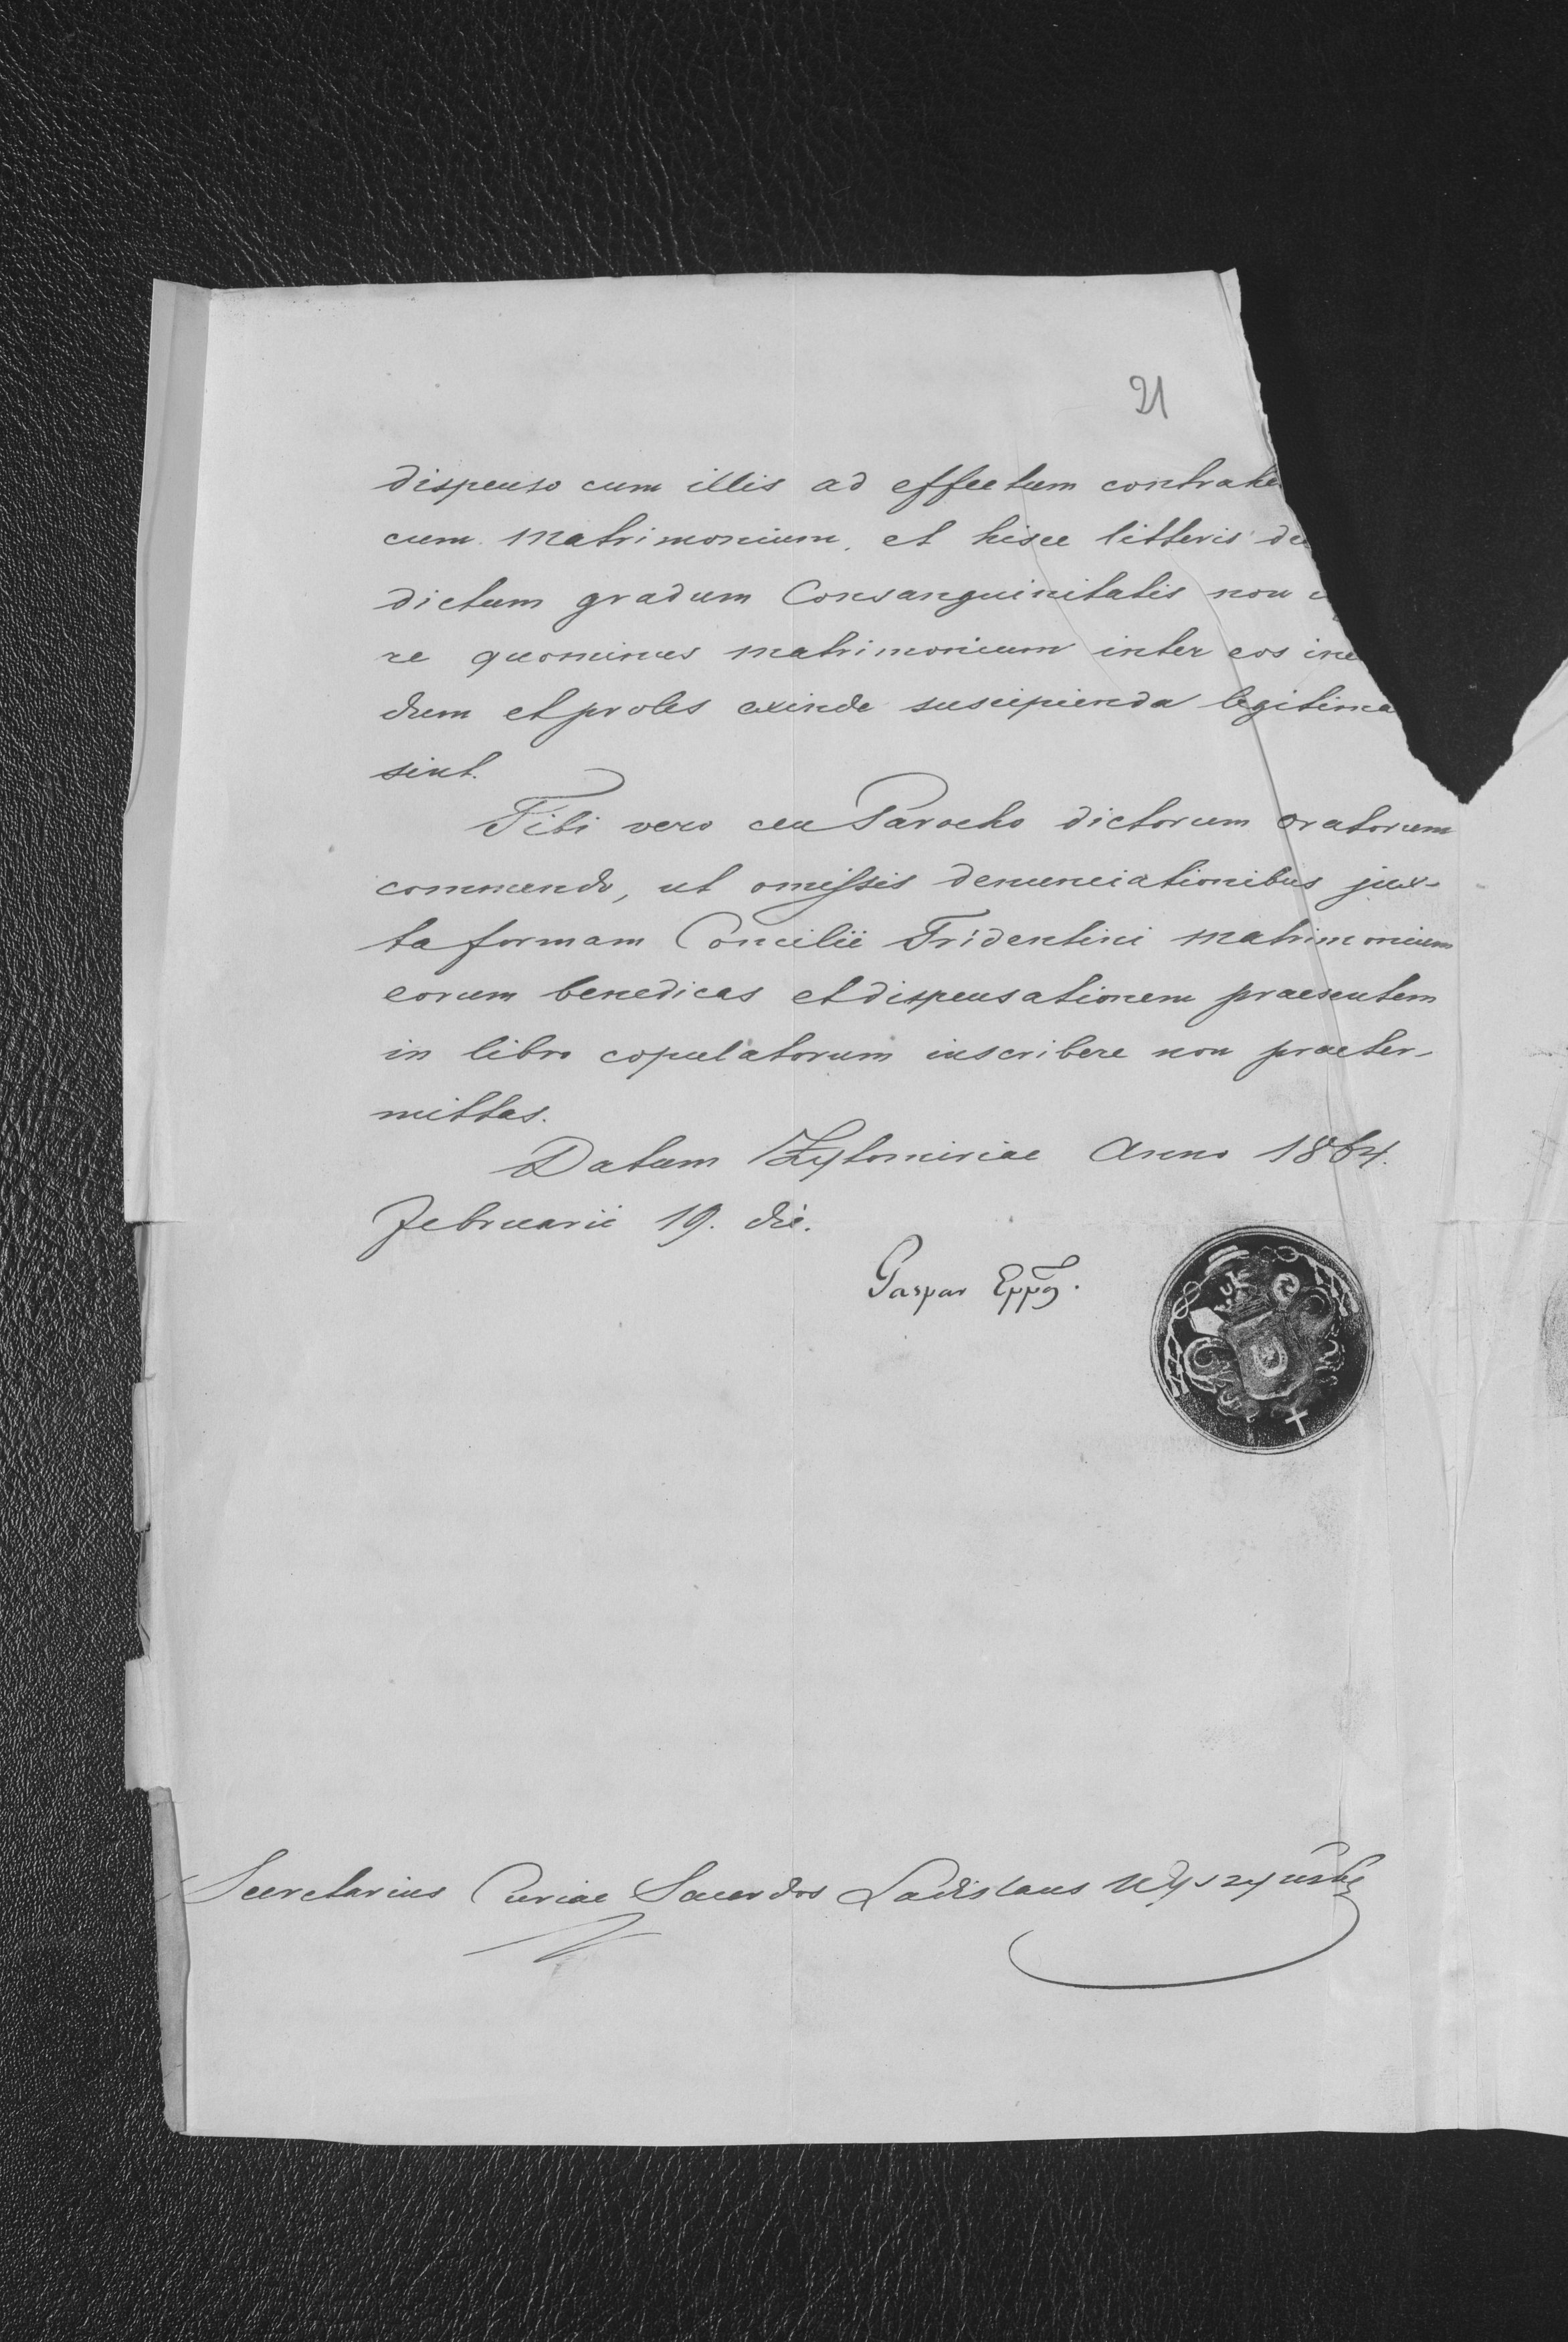 21
dispenso cum illis ad effectum contrahe
cum matrimonium, et hisce litteris de
dictum gradum Consanguinitatis non
re quominus matrimonium inter eos ine
dum et proles exinde suscipienda legitima
sint.
Tibi vero ceu Parocho dictorum oratorum
commendo, ut omissis denunciationibus jux-
ta formam Concilii Tridentini matrimonium
eorum benedicas et dispensationem praesentem
in libro copulatorum inscribere non praeter-
mittas.
Datum Zytomiriae Anno 1864.
Februarii 19. die.
Gaspar Eppus.
Secretarius Curiae Sacerdos Ladislaus Wyszyński